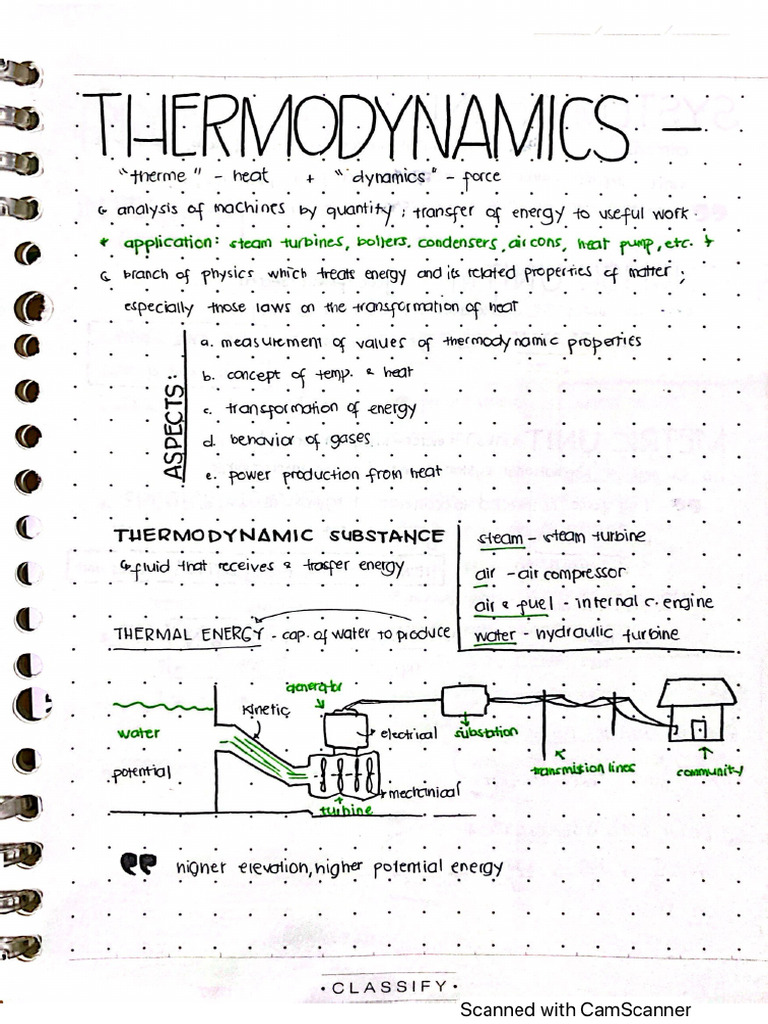 THERMODYNAMICS -
"therme" - heat + "dynamics" - force
analysis of machines by quantity ; transfer of energy to useful work.
* application: steam turbines, boilers, condensers, aircons, heat pump, etc. *
branch of physics which treats energy and its related properties of matter ;
especially those laws on the transformation of heat
ASPECTS:
a. measurement of values of thermodynamic properties
b. concept of temp. & heat
c. transformation of energy
d. behavior of gases
e. power production from heat
THERMODYNAMIC SUBSTANCE
↳ fluid that receives & trasfer energy
steam - steam turbine
air - air compressor
air & fuel - internal c. engine
water - hydraulic turbine
THERMAL ENERGY - cap. of water to produce
generator
kinetic
water
electrical
substation
potential
transmission lines
community
mechanical
turbine
higher elevation, higher potential energy
• CLASSIFY •
Scanned with CamScanner